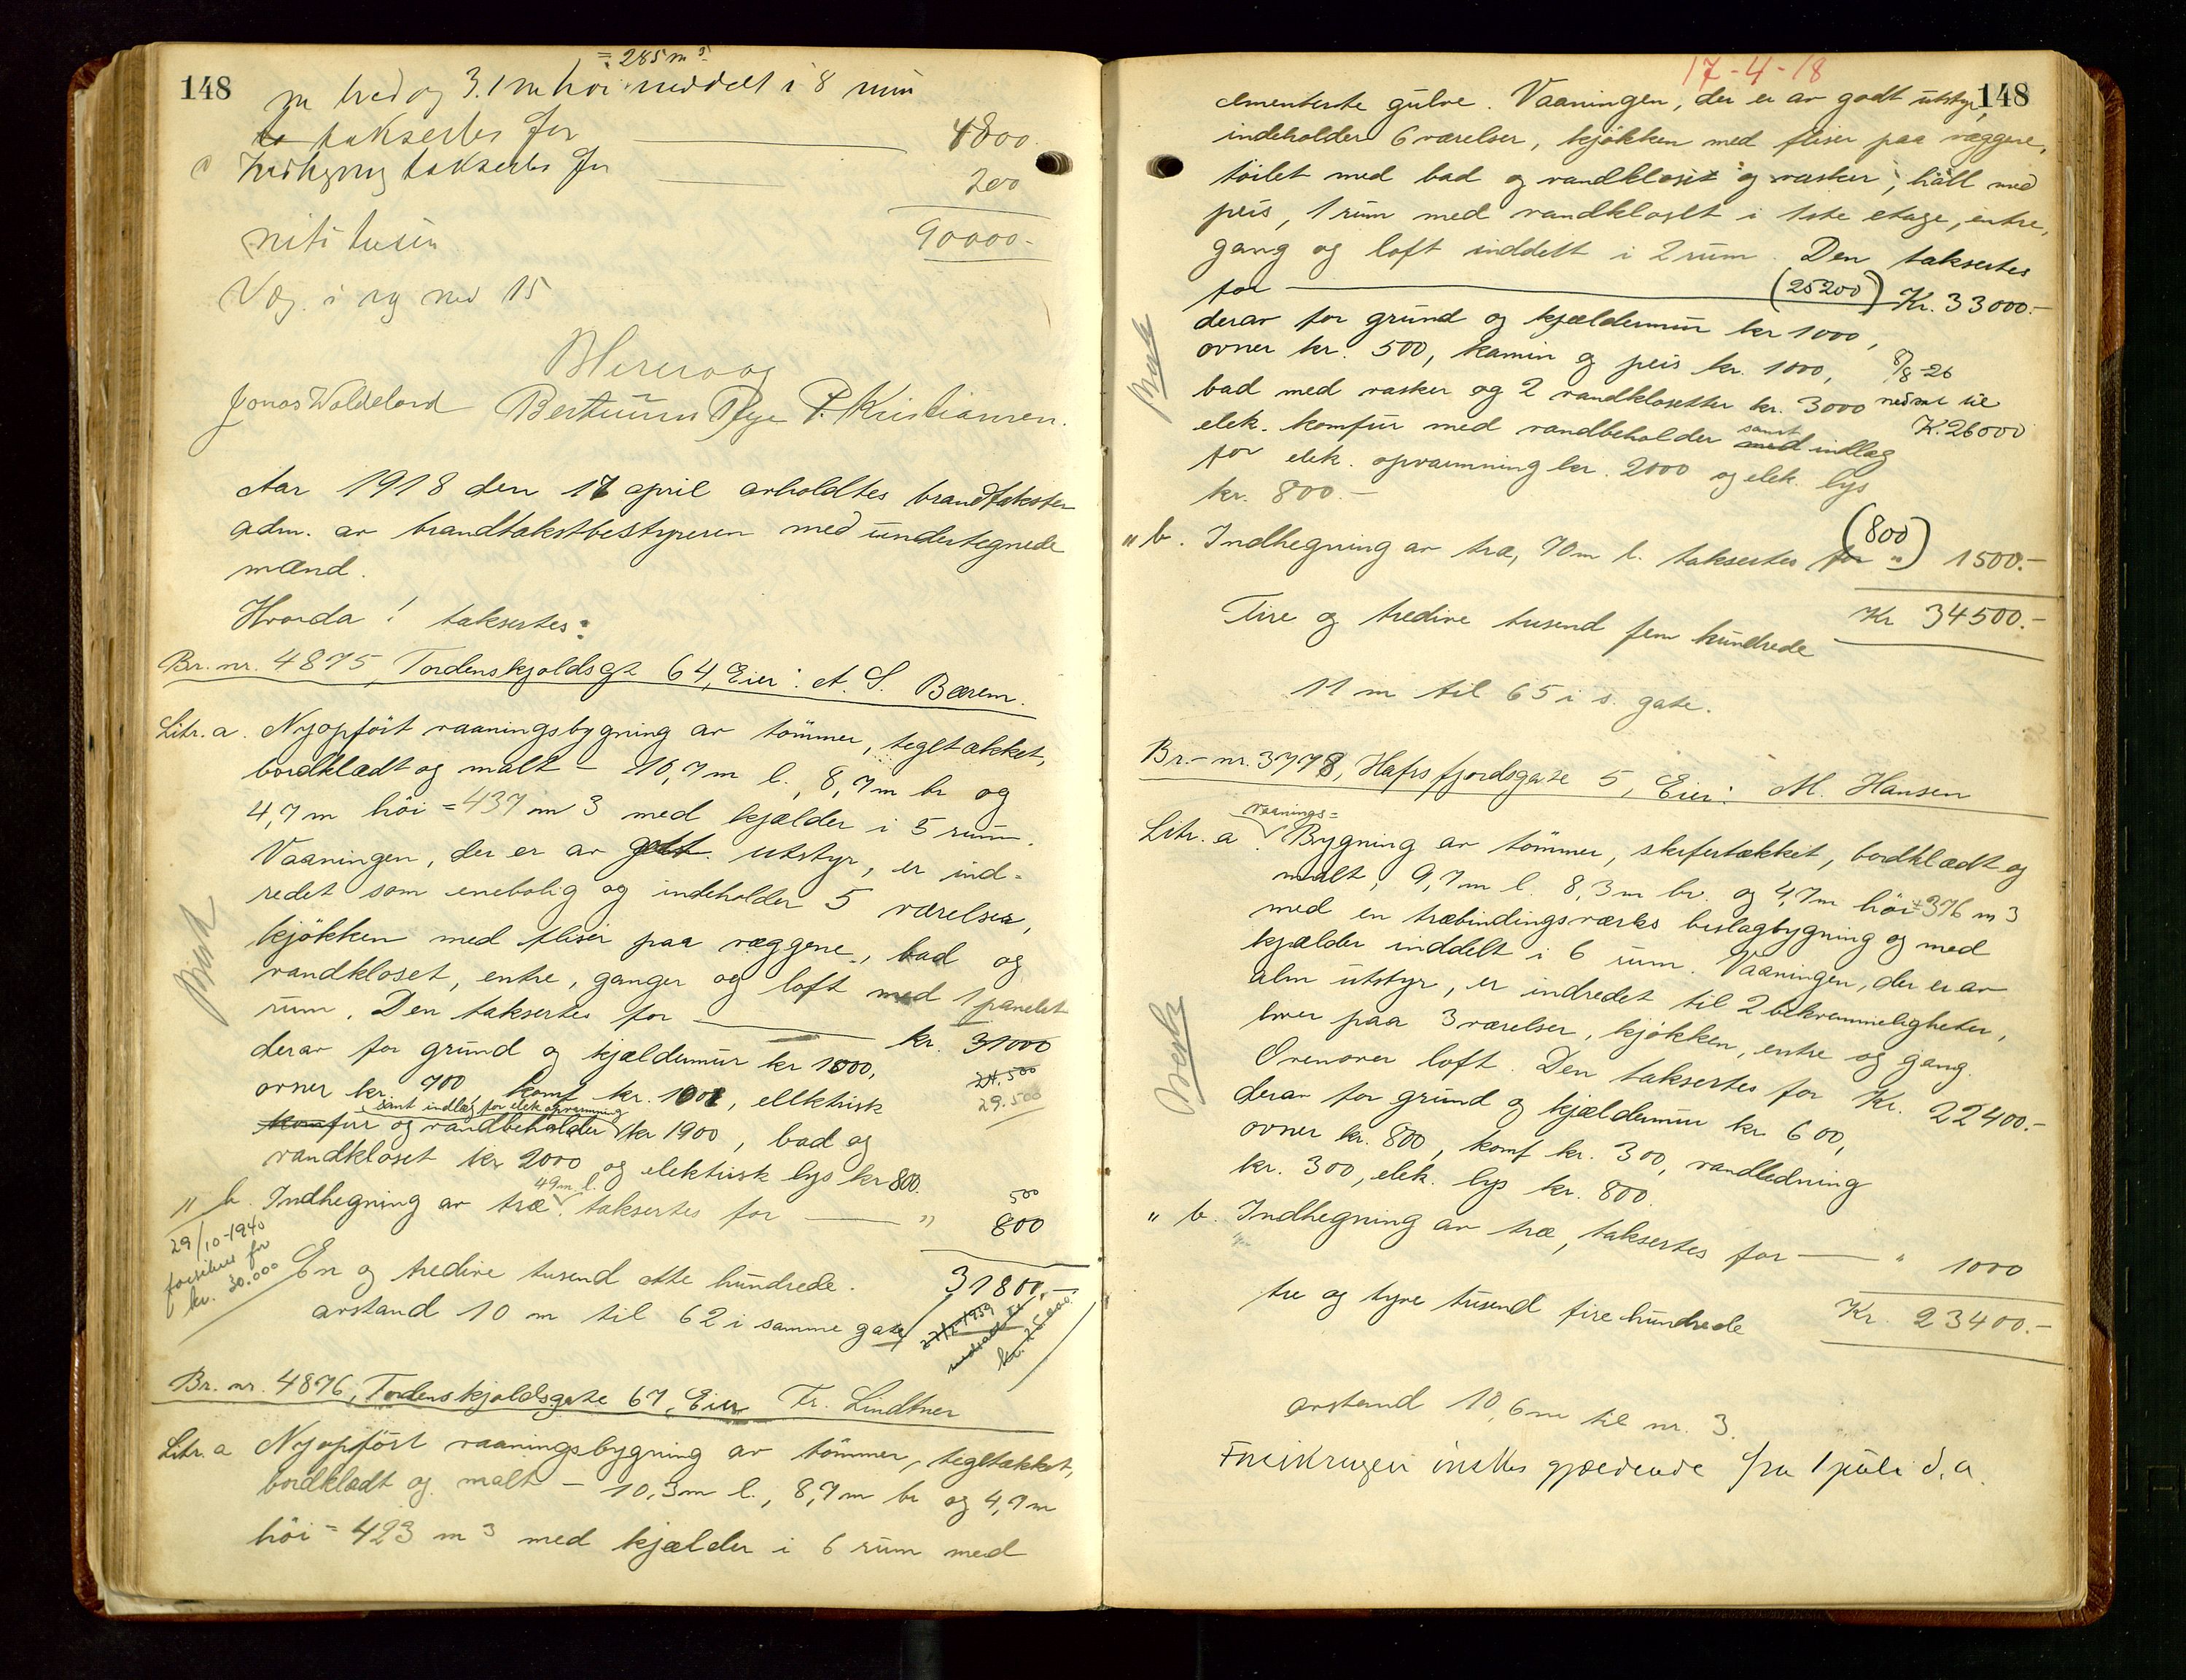 148
= 285 m³
m bred og 3.1 m höi inddelt i 8 rum
takseres for 4800.
Indhegning takseres for 200
niti tusen 90000.-
Væg. i og med 15
Jonas Waldeland P. Kristiansen.
Aar 1918 den 17 april avholdtes brandtakster
adm. av brandtakstbestyreren med undertegnede
mænd.
Hvorda! taksertes:
Br. nr. 4875, Tordenskjoldsgt 64, Eier: A. S. Bærem.
Litr. a. Nyopfört vaaningsbygning av tömmer, tegltækket,
bordklædt og malt - 10,7 m l., 8,7 m br og
4,7 m höi = 437 m3 med kjælder i 5 rum.
Vaaningen, der er av godt utstyr, er ind-
redet som enebolig og indeholder 5 værelser,
kjökken med fliser paa væggene, bad og
vandkloset, entre, ganger og loft med 1 panelet
rum. Den taksertes for kr. 31000
derav for grund og kjældermur kr 1000, 24.500
ovner kr. 700, komf kr. 100, elektrisk 29.500
samt indlæg for elek opvarmning
komfur og vandbeholder kr 1900, bad og
vandkloset kr 2000 og elektrisk lys kr 800.
49 m l. 500
" b. Indhegning av træ taksertes for " 800
29/10-1940
forsikres for
kr. 30.000
En og tredive tusend otte hundrede. 31800.-
avstand 10 m til 62 i samme gate
Br. nr. 4876, Tordenskjoldsgate 67, Eier Fr. Lindtner
Litr. a Nyopfört vaaningsbygning av tömmer, tegltækket,
bordklædt og malt - 10,3 m l., 8,7 m br og 4,7 m
höi = 423 m3 med kjælder i 6 rum med
17-4-18
148
cementerte gulve. Vaaningen, der er av godt utstyr,
indeholder 6 værelser, kjökken med fliser paa væggene,
toilet med bad og vandkloset og vasker, hall med
peis, 1 rum med vandkloset i 1ste etage, entre,
gang og loft inddelt i 2 rum. Den taksertes
for (25200) Kr. 33000.-
derav for grund og kjældermur kr 1000,
ovner kr. 500, kamin og peis kr. 1000, 8/8-26
bad med vasker og 2 vandklosetter kr. 3000 nedsat til
elek. komfur med vandbeholder samt med indlæg K. 26000
for elek. opvarmning kr. 2000 og elek. lys
kr. 800.-
" b. Indhegning av træ, 70 m l. taksertes for (800) " 1500.-
Fire og tredive tusend fem hundrede Kr 34500.-
11 m til 65 i s. gate.
Br.-nr. 3778, Hafrsfjordsgate 5, Eier: M. Hansen
vaanings=
Litr. a. Bygning av tömmer, skifertækket, bordklædt og
malt, 9,7 m l. 8,3 m br. og 4,7 m höi = 376 m3
med en træbindingsværks beslagbygning og med
kjælder inddelt i 6 rum. Vaaningen, der er av
alm utstyr, er indredet til 2 bekvemmeligheter,
hver paa 3 værelser, kjökken, entre og gang.
Ovenover loft. Den taksertes for Kr. 22400.-
derav for grund og kjældermur kr 600,
ovner kr. 800, komf kr. 300, vandledning
kr. 300, elek. lys kr. 800.
" b. Indhegning av træ, taksertes for " 1000
tre og tyve tusend fire hundrede Kr. 23400.-
avstand 10,6 m til nr. 3.
Forsikringen önskes gjældende fra 1 juli d. a.